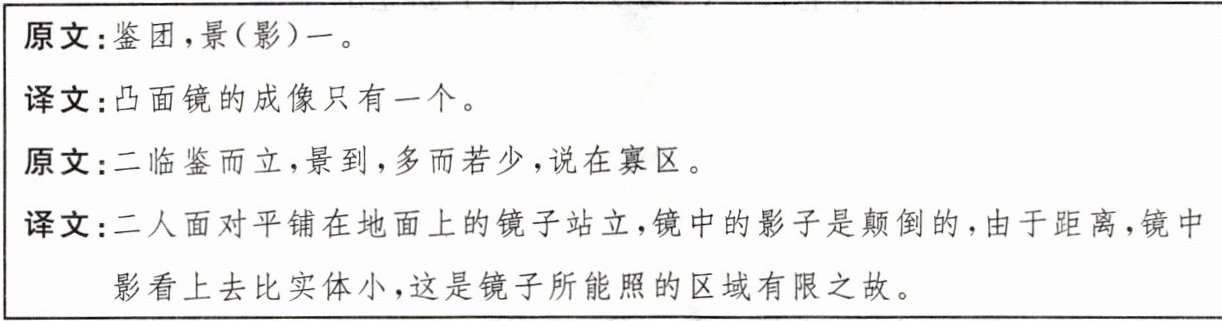 原文:鉴团,景(影)一。
译文:凸面镜的成像只有一个。
原文:二临鉴而立,景到,多而若少,说在寡区。
译文:二人面对平铺在地面上的镜子站立,镜中的影子是颠倒的,由于距离,镜中
影看上去比实体小,这是镜子所能照的区域有限之故。